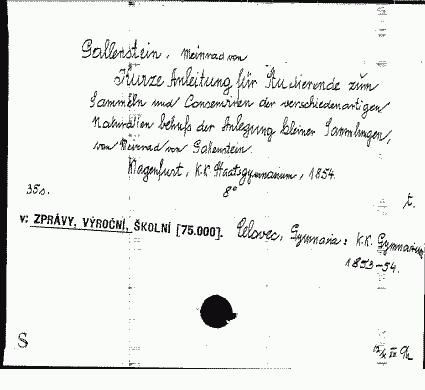 Gallenstein, Meinrad von
Kurze Anleitung für Studierende zum
Sammeln und Conserviren der verschiedenartigen
Naturalien behufs der Anlegung kleiner Sammlungen,
von Meinrad von Gallenstein.
Klagenfurt, K.K. Staatsgymnasium, 1854.
35s. 8° t.
v: ZPRÁVY, VÝROČNÍ, ŠKOLNÍ [75.000]. Celovec, Gymnasia: K.K. Gymnasium
1853-54.
S